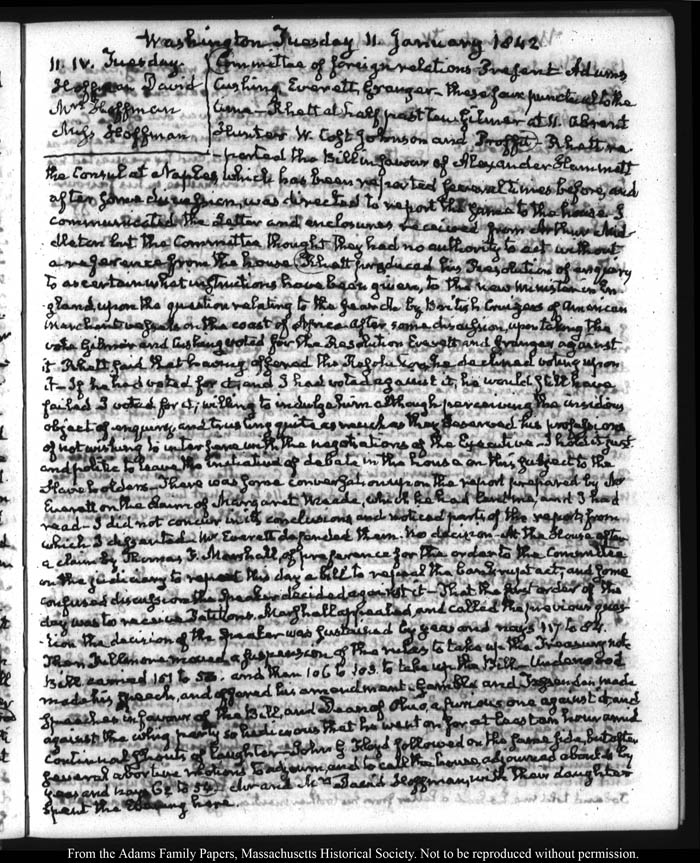 Washington Tuesday 11. January 1842
11. IV. Tuesday.
Hoffman David
Mrs Hoffman
Miss Hoffman
Committee of foreign relations Present Adams
Cushing Everett, Granger – these four punctual to the
time – Rhett at half past ten Gilmer at 11. Absent
Hunter W. Cost Johnson and Proffit – Rhett re
-ported the Bill in favour of Alexander Hammett
the Consul at Naples, which has been reported several times before, and
after some discussion, was directed to report the same to the house. I
communicated the Letter and enclosures received from Arthur Mid-
dleton but the Committee thought they had no authority to act without
a reference from the house. Rhett produced his Resolution of enquiry
to ascertain what instructions have been given, to the new minister in En
gland, upon the question relating to the search by British Cruizers of American
merchant vessels on the coast of Africa. After some discussion, upon taking the
vote Gilmer and Cushing voted for the Resolution Everett and Granger against
it. Rhett said that having offered the Resolution, he declined voting upon
it – If he had voted for it, and I had voted against it, he would still have
failed I voted for it; willing to indulge him although perceiving the insidious
object of enquiry, and trusting quite as much as they deserved his professions
of not wishing to interfere with the negotiations of the Executive – I hold it just
and politic to leave the initiative of debate in the house on this subject to the
slave-holders – There was some conversation upon the report prepared by Mr
Everett on the claim of Margaret Meade, which he had lent me, and I had
read – I did not concur in its conclusions and noticed parts of the report from
which I dissented. Mr Everett defended them: no decision – At the House after
a claim by Thomas F. Marshall, of preference for the order to the Committee
on the judiciary to report this day a bill to repeal the bankrupt act; and some
confused discussion the Speaker decided against it – That the first order of the
day was to receive Petitions. Marshall appealed, and called the previous ques-
-tion the decision of the Speaker was sustained by yeas and nays 117 to 84.
Then Fillmore moved a suspension of the rules to take up the Treasury note
Bill carried 101 to and then 106 to 103. to take up the Bill – Underwood
made his speech, and offered his amendment. Gamble and Fessenden made
Speeches in favour of the Bill, and Dean of Ohio, a furious one against it, and
against the whig party so ludicrous that he went on for at least an hour amid
continual shouts of laughter – John G Floyd followed on the same side, but after
several abortive motions to adjourn, and to call the house, adjourned about by
yeas and nays to Mr and Mrs David Hoffman, with their daughter
spent the Evening here.
From the Adams Family Papers, Massachusetts Historical Society. Not to be reproduced without permission.